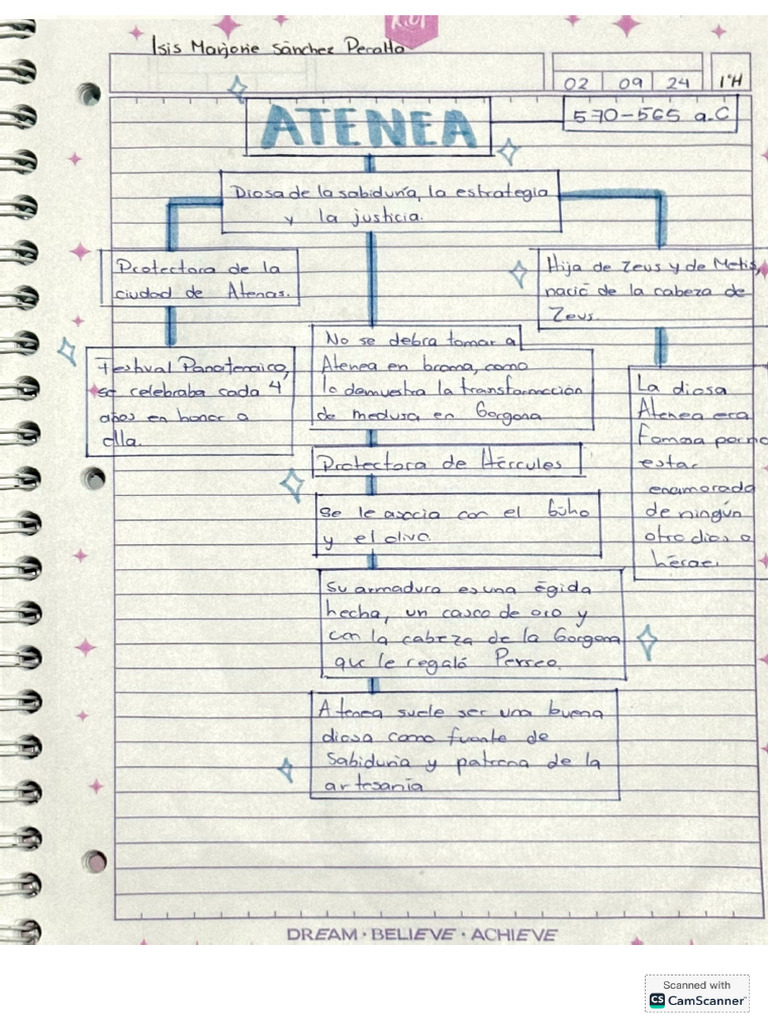 Isis Marjorie Sánchez Peralta
02 09 24 1°H
ATENEA
570-565 a.C
Diosa de la sabiduría, la estrategia
y la justicia.
Protectora de la
ciudad de Atenas.
Hija de Zeus y de Metis,
nació de la cabeza de
Zeus.
Festival Panatenaico,
se celebraba cada 4
años en honor a
ella.
No se debra tomar a
Atenea en broma, como
lo demuestra la transformación
de medusa en Gorgona
La diosa
Atenea era
famosa por no
estar
enamorada
de ningún
otro dios o
héroe.
Protectora de Hércules
Se le asocia con el búho
y el olivo.
Su armadura es una égida
hecha, un casco de oro y
con la cabeza de la Gorgona
que le regaló Perseo.
Atenea suele ser una buena
diosa como fuente de
sabiduría y patrona de la
artesanía
DREAM · BELIEVE · ACHIEVE
Scanned with
CS CamScanner